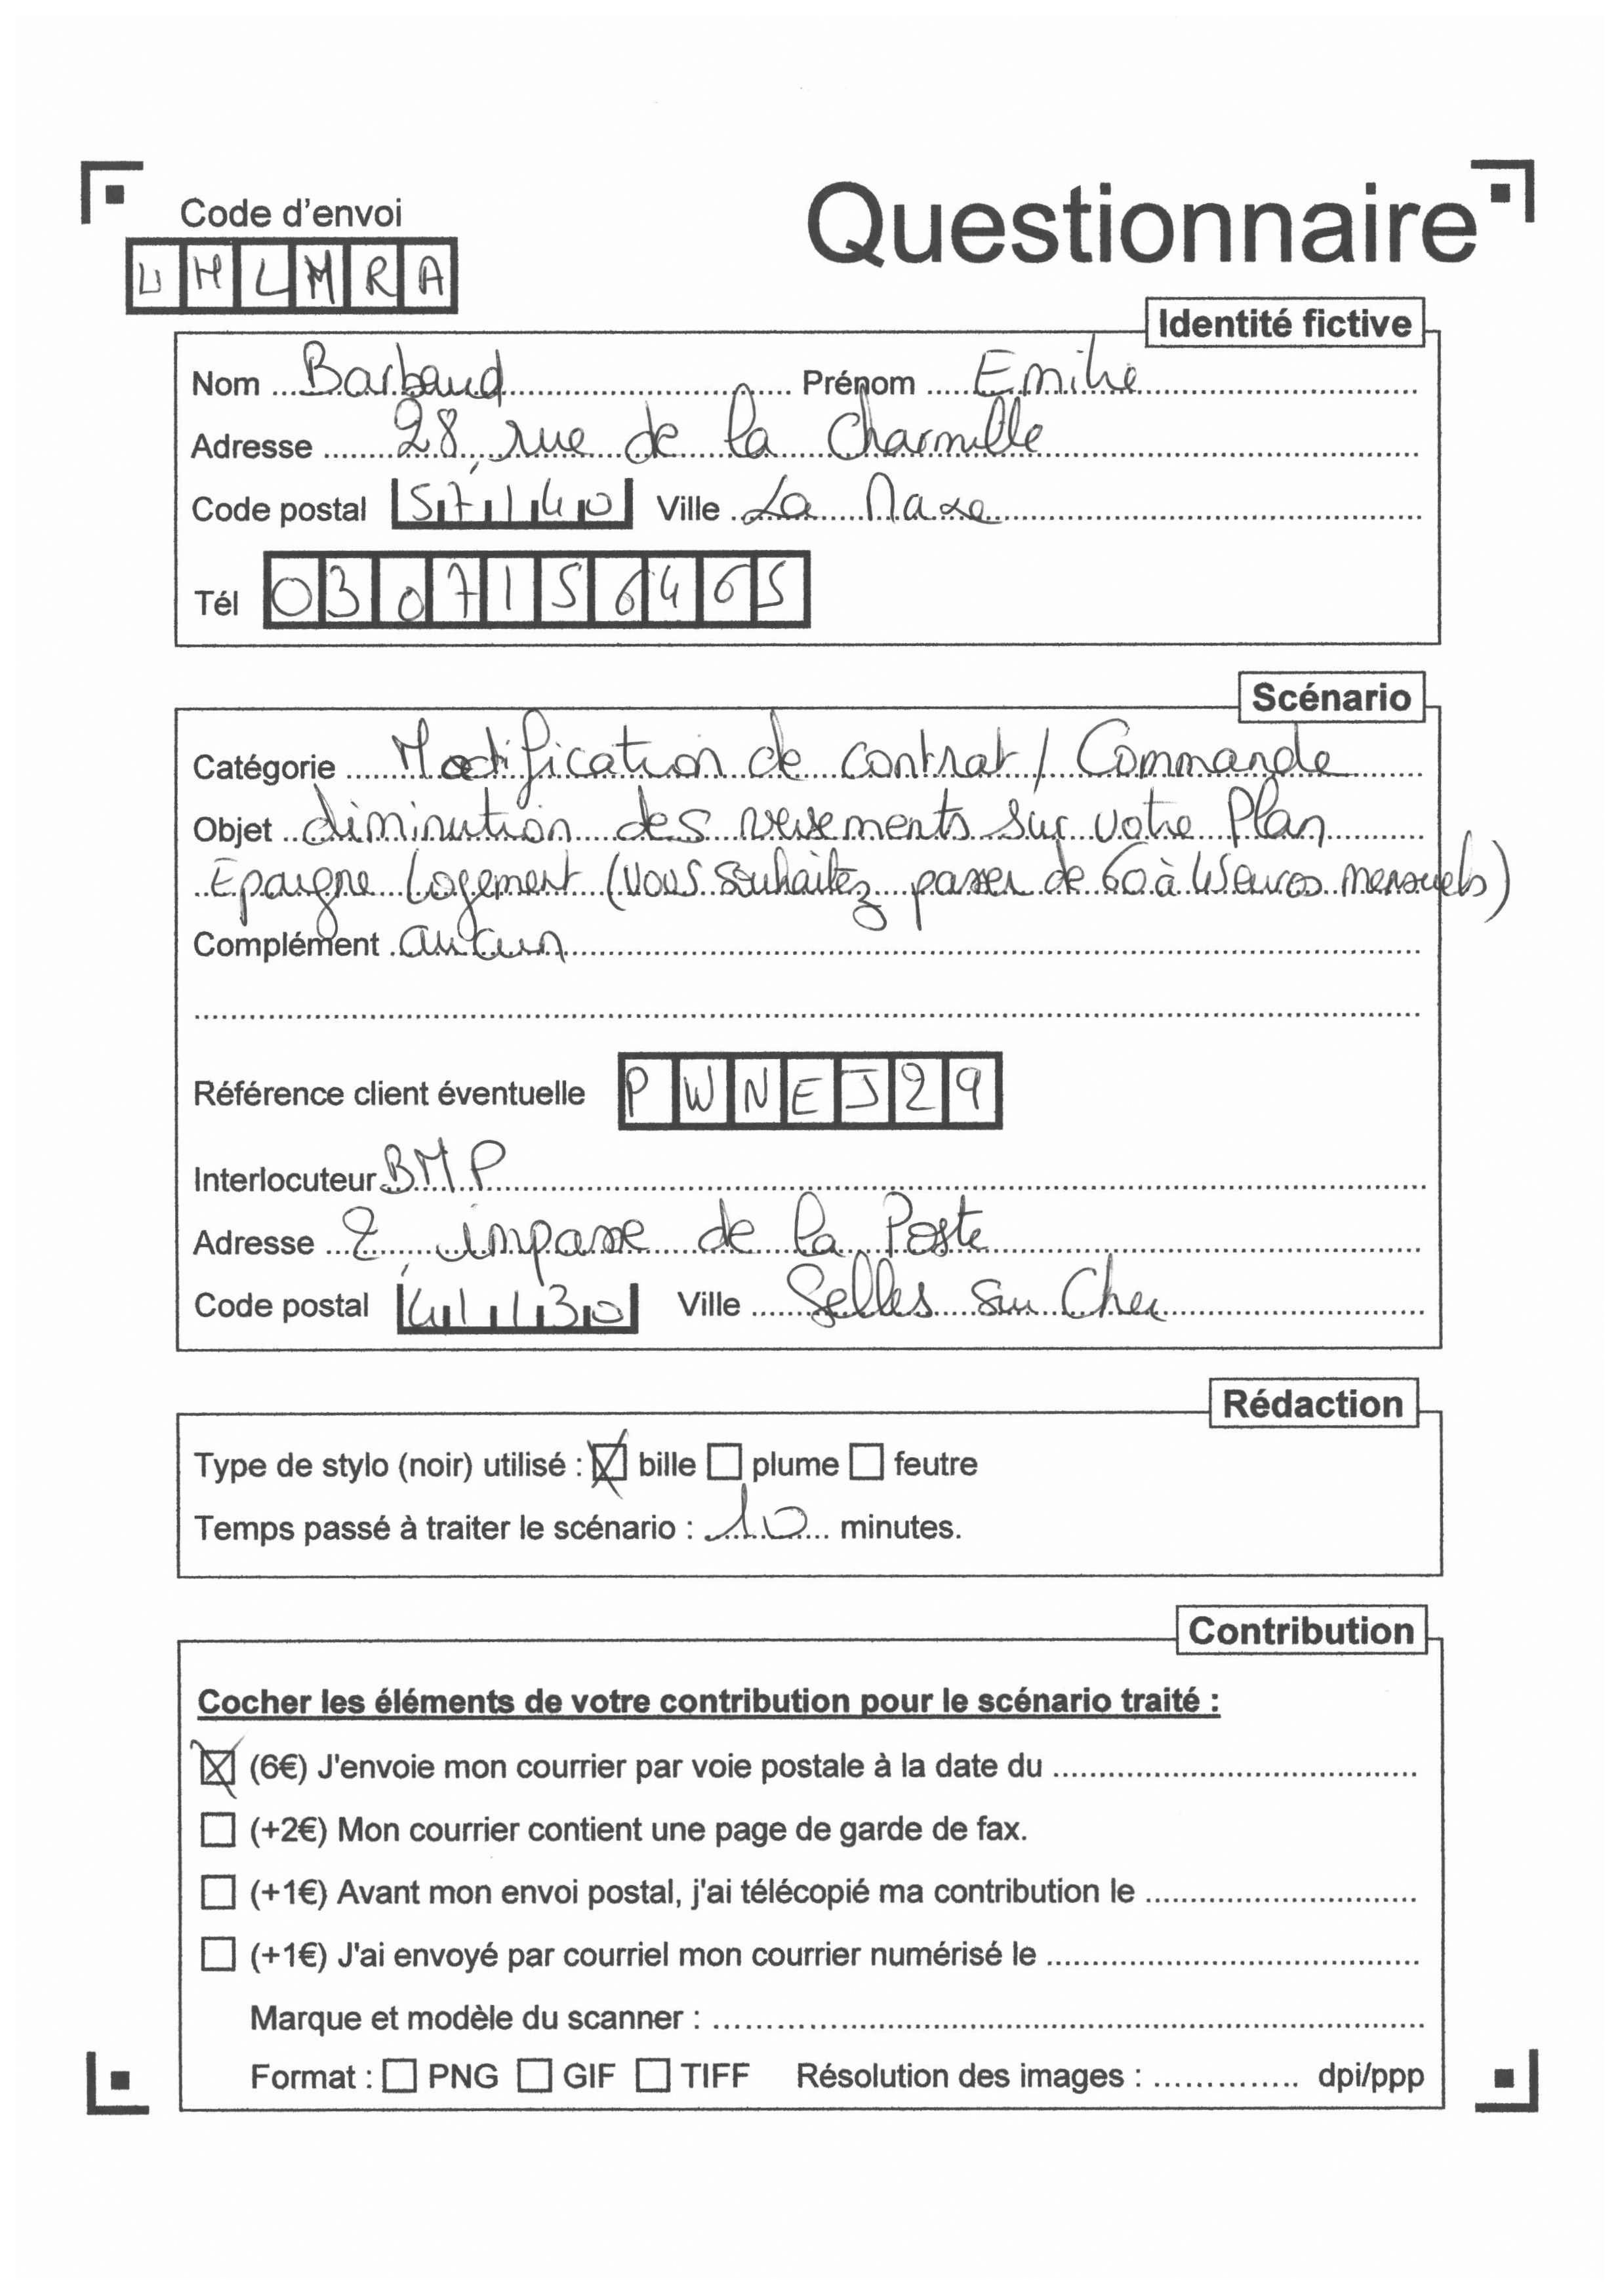 Code d'envoi
Questionnaire
U H L M R A
Identité fictive
Nom Barbaud Prénom Emilie
Adresse 28, rue de la Charmille
Code postal 57140 Ville La Maxe
Tél 0307156465
Scénario
Catégorie Modification de contrat / Commande
Objet diminution des versements sur votre Plan
Epargne Logement (Vous souhaitez passer de 60 à 45 euros mensuels)
Complément aucun
Référence client éventuelle PWNEJ29
Interlocuteur BMP
Adresse 2, impasse de la Poste
Code postal 41130 Ville Selles sur Cher
Rédaction
Type de stylo (noir) utilisé : ☒ bille ☐ plume ☐ feutre
Temps passé à traiter le scénario : 10 minutes.
Contribution
Cocher les éléments de votre contribution pour le scénario traité :
☒ (6€) J'envoie mon courrier par voie postale à la date du
☐ (+2€) Mon courrier contient une page de garde de fax.
☐ (+1€) Avant mon envoi postal, j'ai télécopié ma contribution le
☐ (+1€) J'ai envoyé par courriel mon courrier numérisé le
Marque et modèle du scanner :
Format : ☐ PNG ☐ GIF ☐ TIFF Résolution des images : dpi/ppp